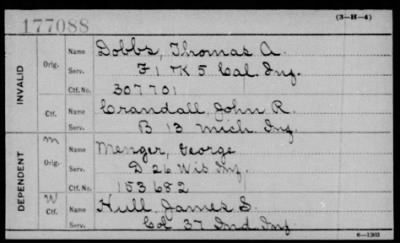 177088
(3-H-4)
INVALID
Orig.
Name Dobbs, Thomas A.
Serv. F 1 & K 5 Cal. Inf.
Ctf. No. 307701
Ctf.
Name Crandall John R.
Serv. B 13 Mich Inf.
DEPENDENT
M
Orig.
Name Menger, George
Serv. D 26 Wis Inf.
Ctf. No. 153682
W
Ctf.
Name Hull James S.
Serv. 37 Ind Inf
6-1303